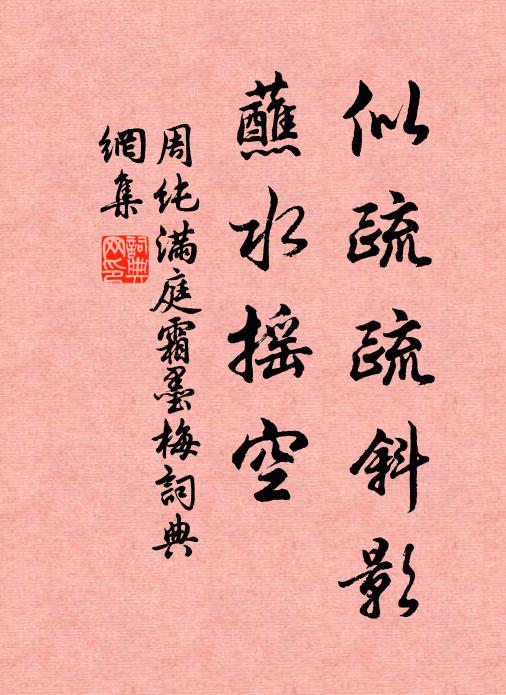 似疏疏斜影
蘸水摇空
周纯满庭霜墨梅詞典
網集
詞典
网印